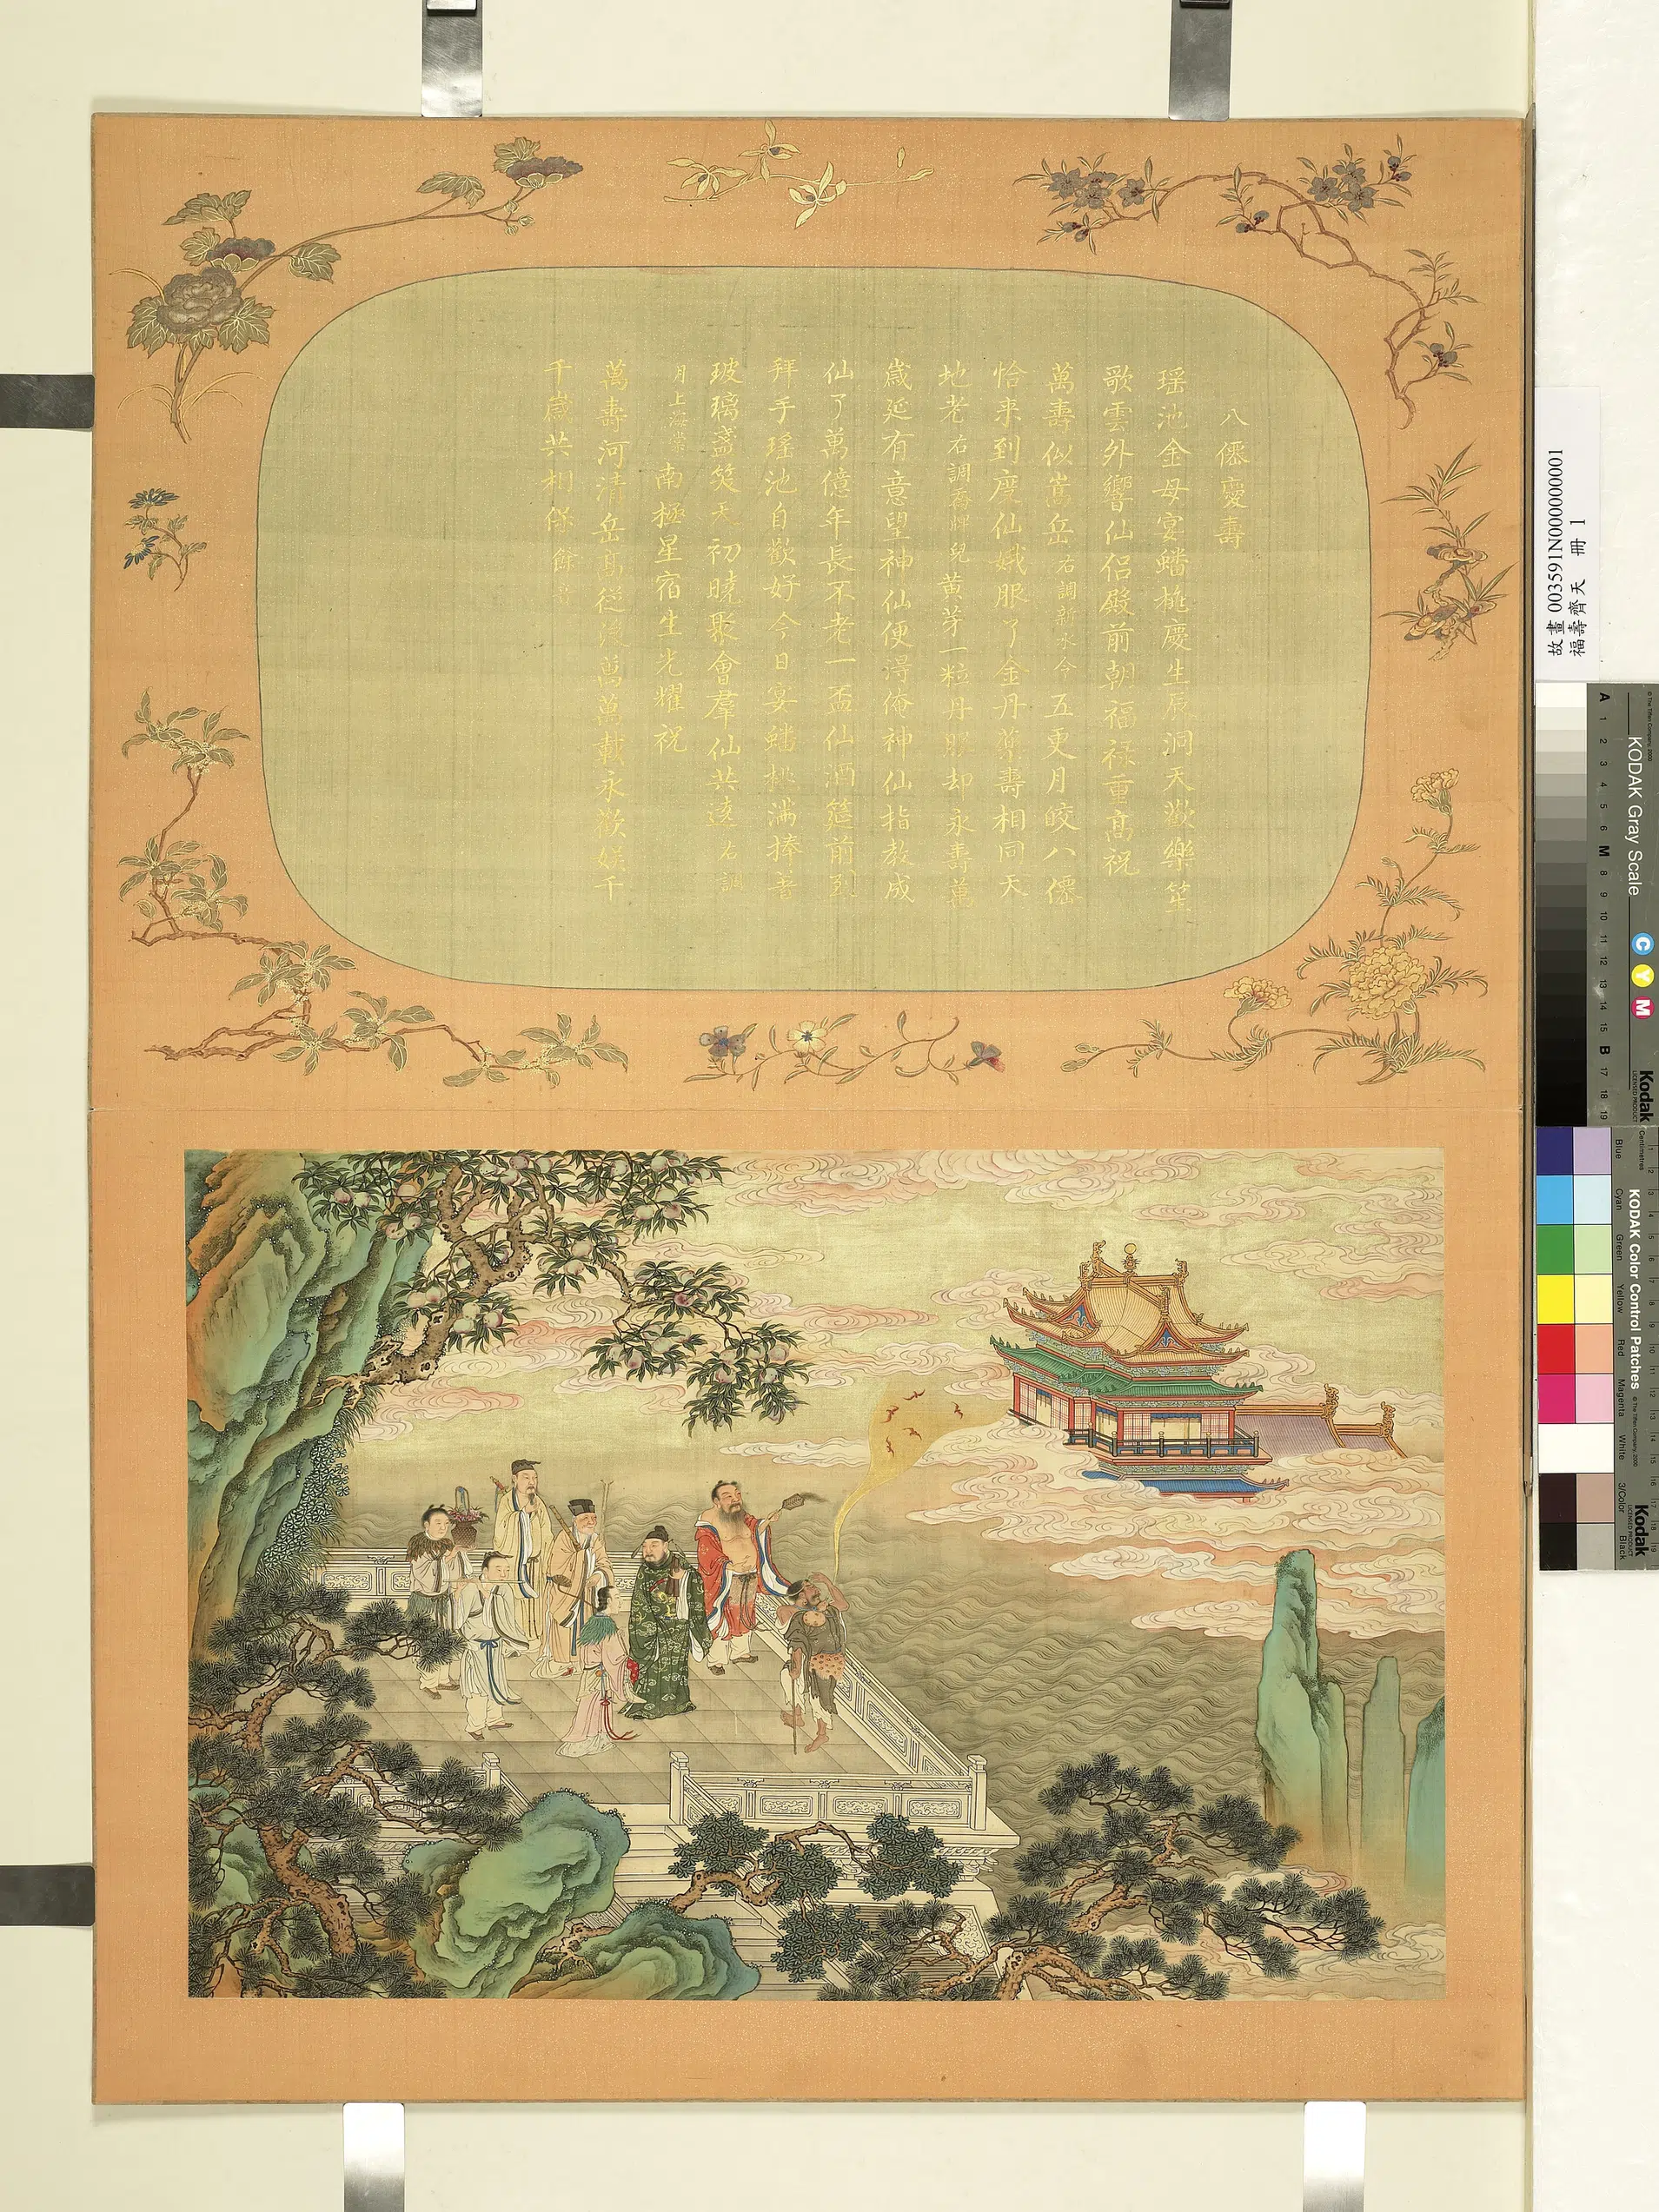 八僊慶壽
瑶池金母宴蟠桃慶生辰洞天歡樂笙
歌雲外響仙侣殿前朝福禄重髙祝
萬壽似嵩岳右調新水令五更月皎八僊
恰来到度仙娥服了金丹尊壽相同天
地老右調 兒黄芽一粒丹 却永壽萬
歲延有意望神仙便得俺神仙指教成
仙了萬億年長不老一盃仙酒筵前到
拜手瑶池自歡好今日宴蟠桃滿捧着
玻璃盞笑天初曉聚會羣仙共遠右調
月上海棠南極星宿生光耀祝
萬壽河清岳髙從 萬萬載永歡娱千
千歲共相保餘音
故畫 003591N000000001
福壽齊天 冊 1
KODAK Gray Scale
© The Tiffen Company, 2000
Kodak
LICENSED PRODUCT
A 1 2 3 4 5 6 M 8 9 10 11 12 13 14 15 B 17 18 19
C Y M
KODAK Color Control Patches
© The Tiffen Company, 2000
Kodak
LICENSED PRODUCT
Centimetres
Blue Cyan Green Yellow Red Magenta White 3/Color Black